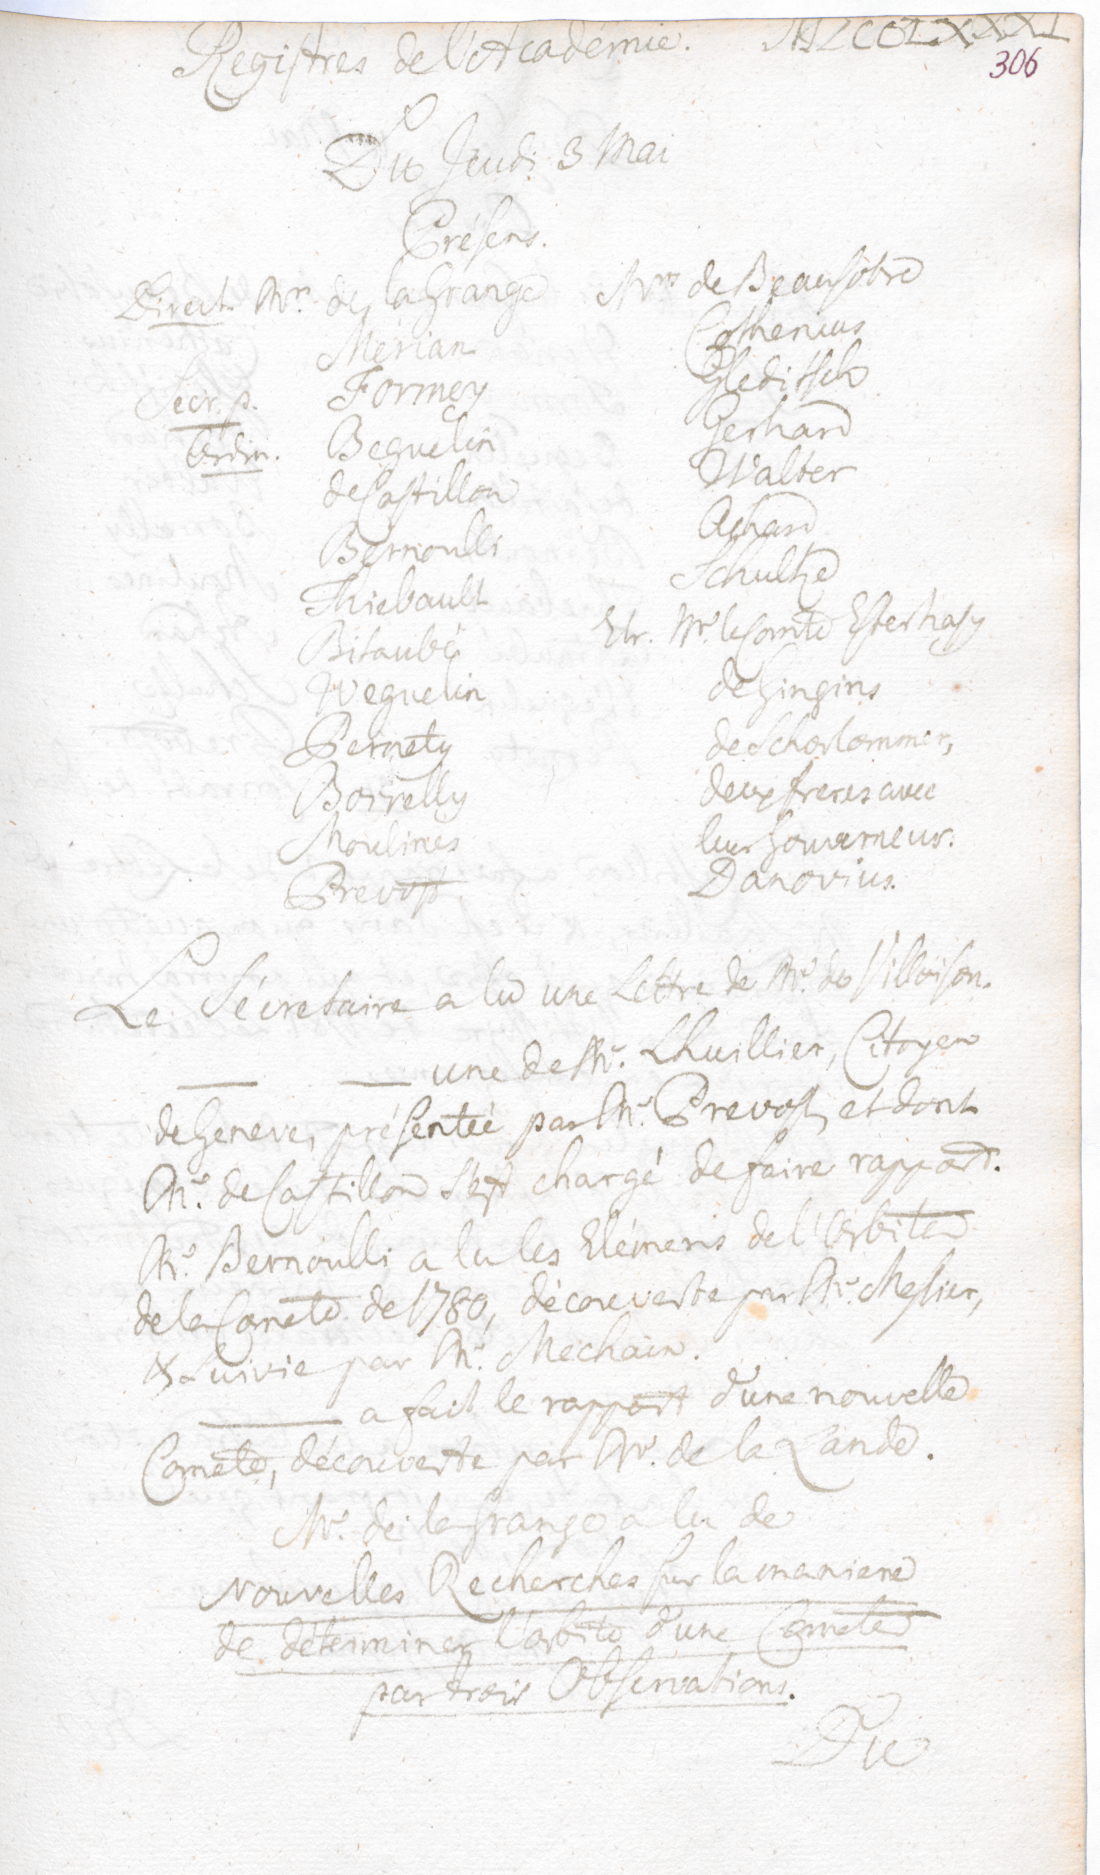 Registres de l'Académie. MDCCLXXXI
306
Du Jeudi 3 Mai
Présens.
Direct. Mrs. de la Grange
Mérian
Secr. p. Formey
Ordin. Beguelin
de Castillon
Bernoulli
Thiebault
Bitaubé
Weguelin
Pernety
Borrelly
Moulines
Prevost
Mrs de Beausobre
Cothenius
Gleditsch
Gerhard
Walter
Achard
Schultze
Etr. Mr. le Comte Esterhasy
de Gingins
de Schorlommer,
deux freres avec
leur Gouverneur.
Danovius.
Le Sécretaire a lu une Lettre de Mr. de Villoison.
une de Mr. Lhuillier, Citoyen
de Geneve, présentée par Mr. Prevost, et dont
Mr. de Castillon s'est chargé de faire rapport.
Mr. Bernoulli a lu les Elémens de l'Orbite
de la Comete de 1780, découverte par Mr. Messier,
& suivie par Mr. Mechain.
a fait le rapport d'une nouvelle
Comete, découverte par Mr. de la Lande.
Mr. de la Grange a lu de
Nouvelles Recherches sur la maniere
de déterminer l'orbite d'une Comete
par trois Observations.
Du